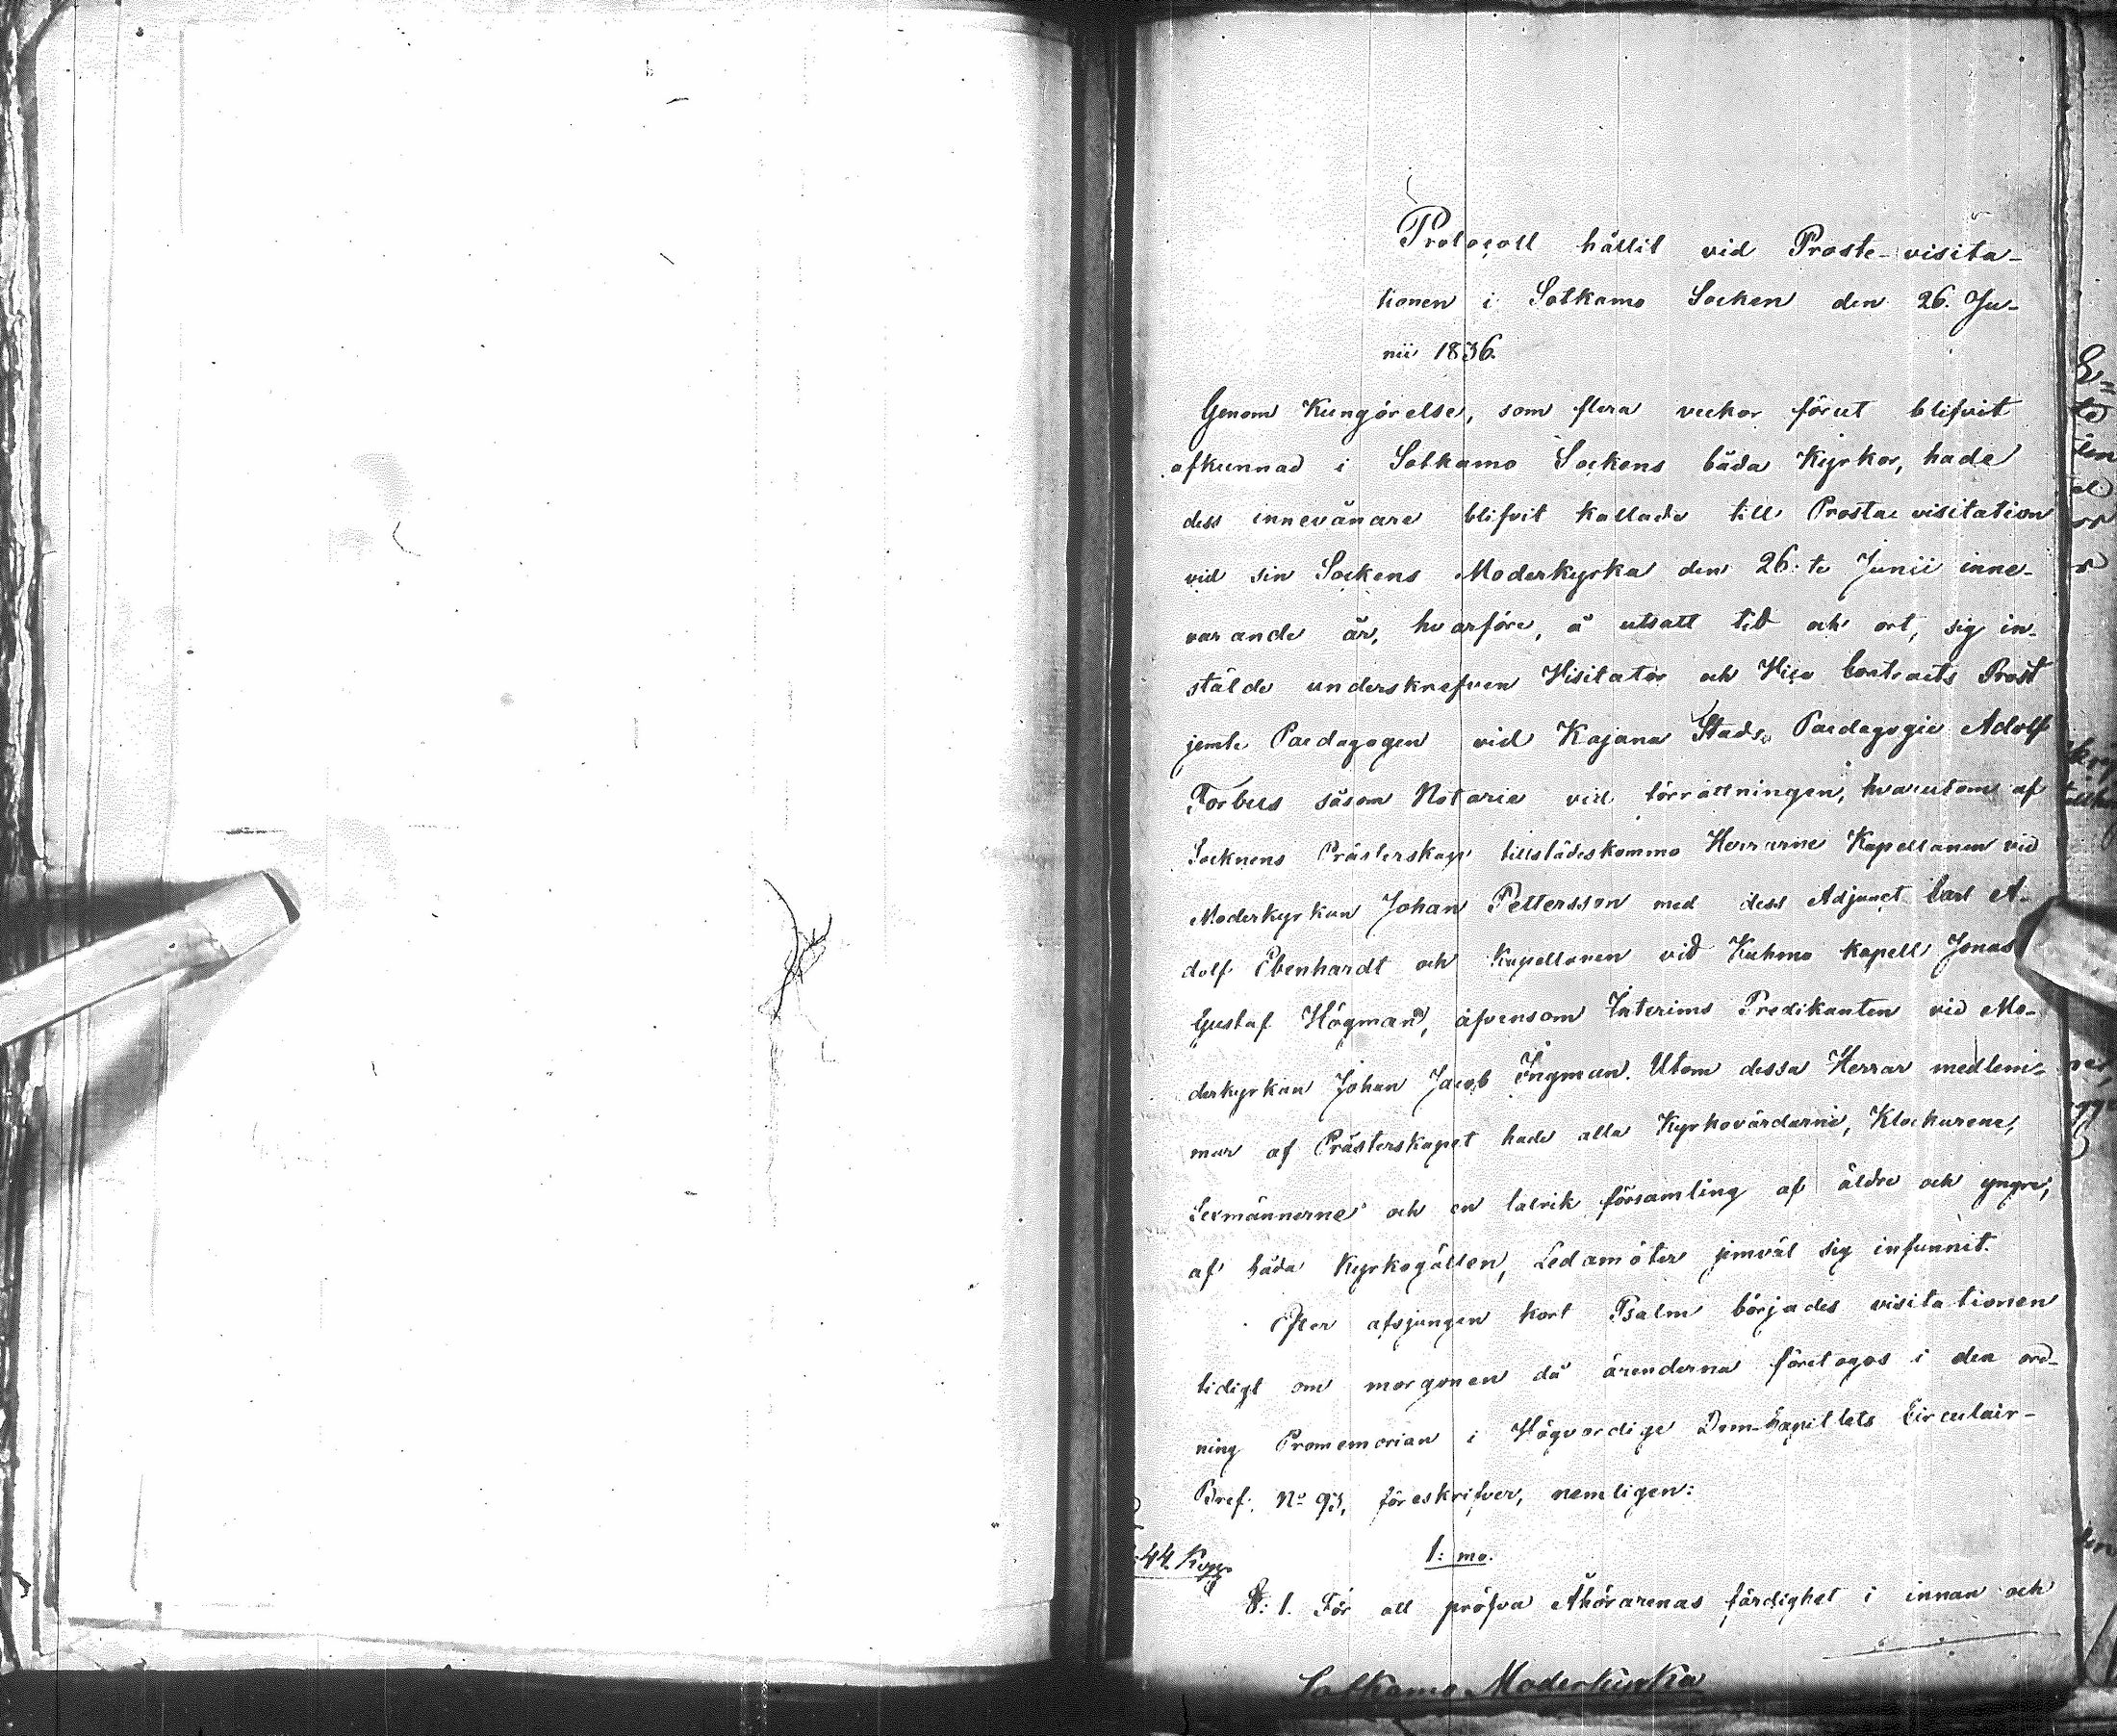 Protocoll hållit vid Proste-visita-
tionen i Sotkamo Socken den 26. Ju-
nii 1836.
Genom Kungörelse, som flera veckor förut blifvit
afkunnad i Sotkamo Sockens båda Kyrkor, hade
dess innevånare blifvit kallade till Proste visitation
vid sin Sockens Moderkyrka den 26:te Junii inne-
varande år, hvarföre, å utsatt tid och ort, sig in-
stälde underskrefven Visitator och Vice Contracts Prost
jemte Paedagogen vid Kajana Stads Paedagogie Adolf
Forbus såsom Notarie vid förrättningen, hvarutom af
Socknens Prästerskap tillstädeskommo Herrarne Kapellanen vid
Moderkyrkan Johan Pettersson med dess Adjunct Carl A-
dolf Ebenhardt och Kapellanen vid Kuhmo kapell Jonas
Gustaf Högman, äfvensom Interims Predikanten vid Mo-
derkyrkan Johan Jacob Ingman. Utom dessa Herrar medlem-
mar af Prästerskapet hade alla Kyrkovärdarne, Klockarene,
Sexmännerne och en talrik församling af äldre och yngre,
af båda Kyrkogällen, Ledamöter jemväl sig infunnit.
Efter afsjungen kort Psalm börjades visitationen
tidigt om morgonen då ärenderna företogos i den ord-
ning Promemorian i Högvördige Dom-Capitlets Circulair-
Bref No 93, föreskrifver, nemligen:
1:mo.
44. Kopp
§: 1. För att pröfva Åhörarenas färdighet i innan och
Sotkamo Moderkyrka